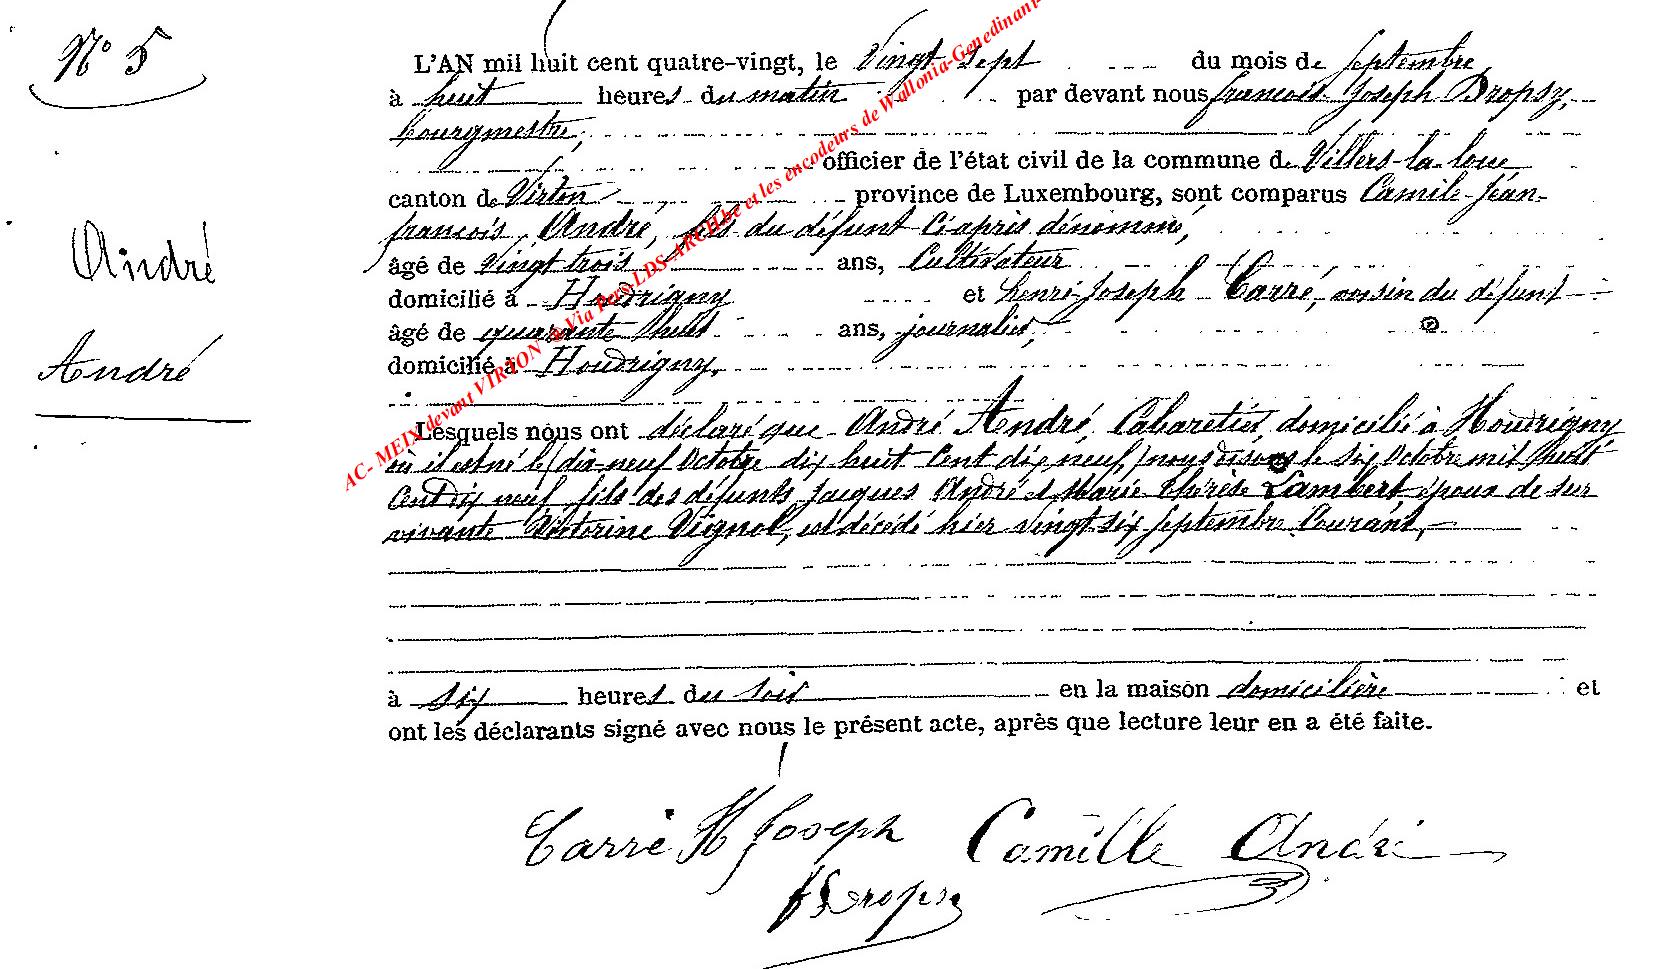 N° 5
André
André
L'AN mil huit cent quatre-vingt, le Vingt sept du mois de Septembre
à huit heures du matin par devant nous francois Joseph Dropsy,
bourgmestre,
officier de l'état civil de la commune de Villers-la-loue
canton de Virton province de Luxembourg, sont comparus Camile-Jean-
françois André, fils du défunt ci après dénommé,
âgé de Vingt trois ans, Cultivateur
domicilié à Houdrigny et henri-Joseph Carré, voisin du défunt
âgé de quarante huit ans, journalier,
domicilié à Houdrigny,
Lesquels nous ont déclaré que André André, Cabaretier, domicilié à Houdrigny
où il est né le (dix-neuf Octobre dix huit Cent dix neuf,) nous disons le six Octobre mil huit
Cent dix neuf, fils des défunts Jacques André et Marie Thérèse Lambert époux de sur
vivante Victorine Vignol, est décédé hier vingt-six Septembre Courant,
à six heures du soir en la maison domicilière et
ont les déclarants signé avec nous le présent acte, après que lecture leur en a été faite.
Carré H Joseph Camille André
fJDropsy
AC- MEIX devant VIRTON & Via Pers-LDS-ARCH.be et les encodeurs de Wallonia-Genedinant-